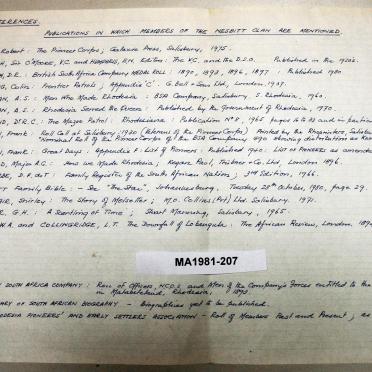 FERENCES.
PUBLICATIONS IN WHICH MEMBERS OF THE NESBITT CLAN ARE MENTIONED.
Robert : The Pioneer Corps; Galaxie Press, Salisbury, 1975.
H, Sir O'MOORE, V.C. and HUMPHRIS, E.M. Editors: The V.C. and the D.S.O. Published in the 1920s.
H, D.R. : British South Africa Company MEDAL ROLL : 1890, 1893, 1896, 1897 : Published 1980
G, Colin : Frontier Patrols; Appendix 'C'. G. Bell & Sons Ltd, London,
AN, A.S. : Men Who Made Rhodesia : BSA Company, Salisbury, S. Rhodesia, 1960.
AN, A.S. : Rhodesia Served the Queen : Published by the Government of Rhodesia, 1970.
ND, D/R.C. : The Mazoe Patrol : Rhodesiana : Publication No 8, 1965 pages 16 to and in particul
Frank : Roll Call at Salisbury : 1920 (Reunion of the Pioneer Corps) Printed by the Salisb
Nominal Roll of the Pioneer Corps of the BSA Company 1890 showing
Frank : Great Days : Appendix F : List of Pioneers : Published 1940 : LIST OF PIONEERS as amended
D, Major A.G. : How we Made Rhodesia, Kegan Paul, Trübner & Co. Ltd, London 1896.
D.F. du T : Family Register of the South African Nation; 3rd Edition, 1966.
TT Family Bible : - See "The Star", Johannesburg, Tuesday 28th October, 1980, page 29.
AIR, Shirley : The Story of Melsetter; M.O. Collins (Pvt) Ltd. Salisbury. 1971.
R, G.H. : A Scantling of Time; Stuart Manning, Salisbury, 1965.
W.A. and COLLINGRIDGE, L.T. The Downfall of Lobengula : The African Review, London, 189
MA1981-207
H SOUTH AFRICA COMPANY : Roll of Officers, N.C.O.s and Men of the Company's Forces entitled to the
in Matabeleland, Rhodesia, 1893.
ARY OF SOUTH AFRICAN BIOGRAPHY - Biographies yet to be published.
ODESIA PIONEERS' AND EARLY SETTLERS ASSOCIATION - Roll of Members Past and Present; as